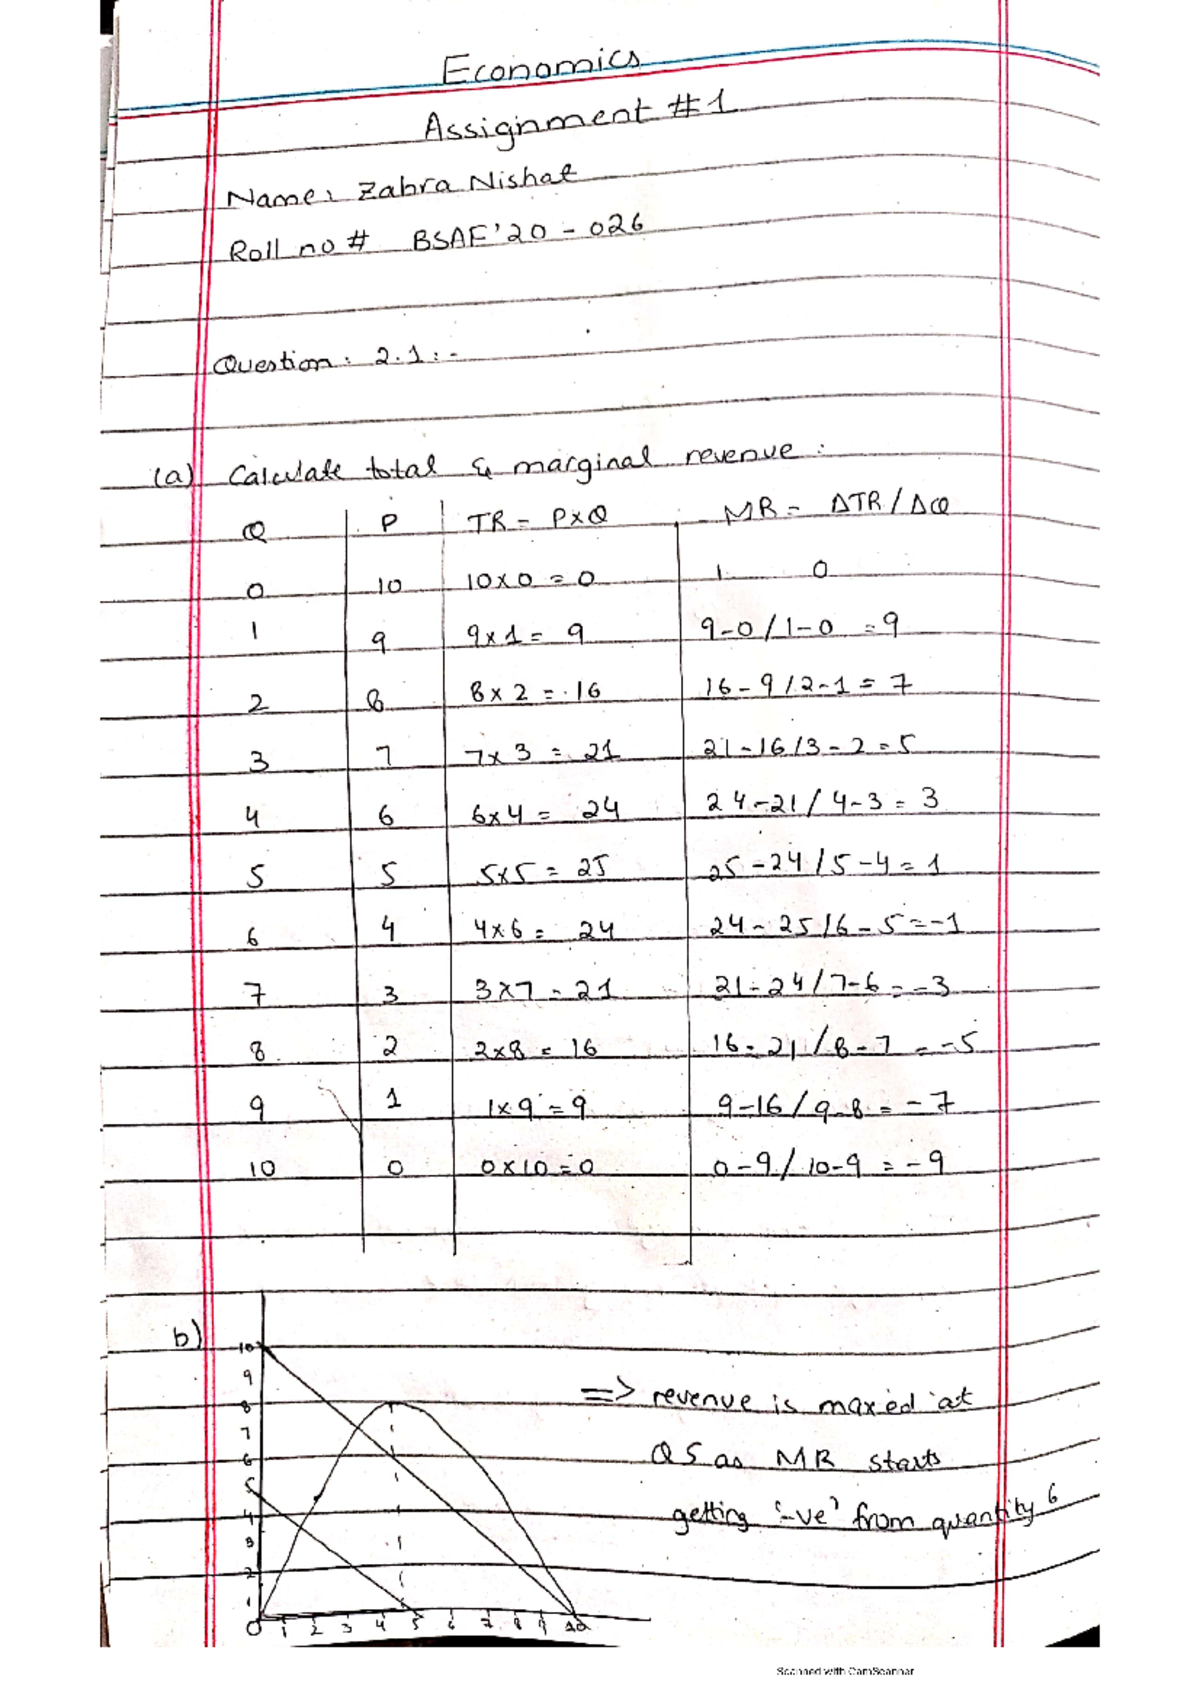 Economics
Assignment #1
Name: Zahra Nishat
Roll no # BSAF'20 - 026
Question: 2.1:-
(a) Calculate total & marginal revenue:
Q P TR = PxQ MR = ΔTR / ΔQ
0 10 10x0 = 0 1 0
1 9 9x1 = 9 9-0 / 1-0 = 9
2 8 8x2 = 16 16-9 / 2-1 = 7
3 7 7x3 = 21 21-16 / 3-2 = 5
4 6 6x4 = 24 24-21 / 4-3 = 3
5 5 5x5 = 25 25-24 / 5-4 = 1
6 4 4x6 = 24 24-25 / 6-5 = -1
7 3 3x7 = 21 21-24 / 7-6 = -3
8 2 2x8 = 16 16-21 / 8-7 = -5
9 1 1x9 = 9 9-16 / 9-8 = -7
10 0 0x10 = 0 0-9 / 10-9 = -9
b)
10
9
8
7
6
5
4
3
2
1
0 1 2 3 4 5 6 7 8 9 10
=> revenue is maxed at
Q5 as MR starts
getting '-ve' from quantity 6
Scanned with CamScanner